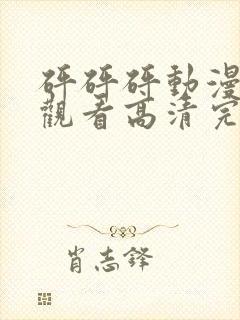 砰砰砰動漫
觀看高清完
肖志鋒